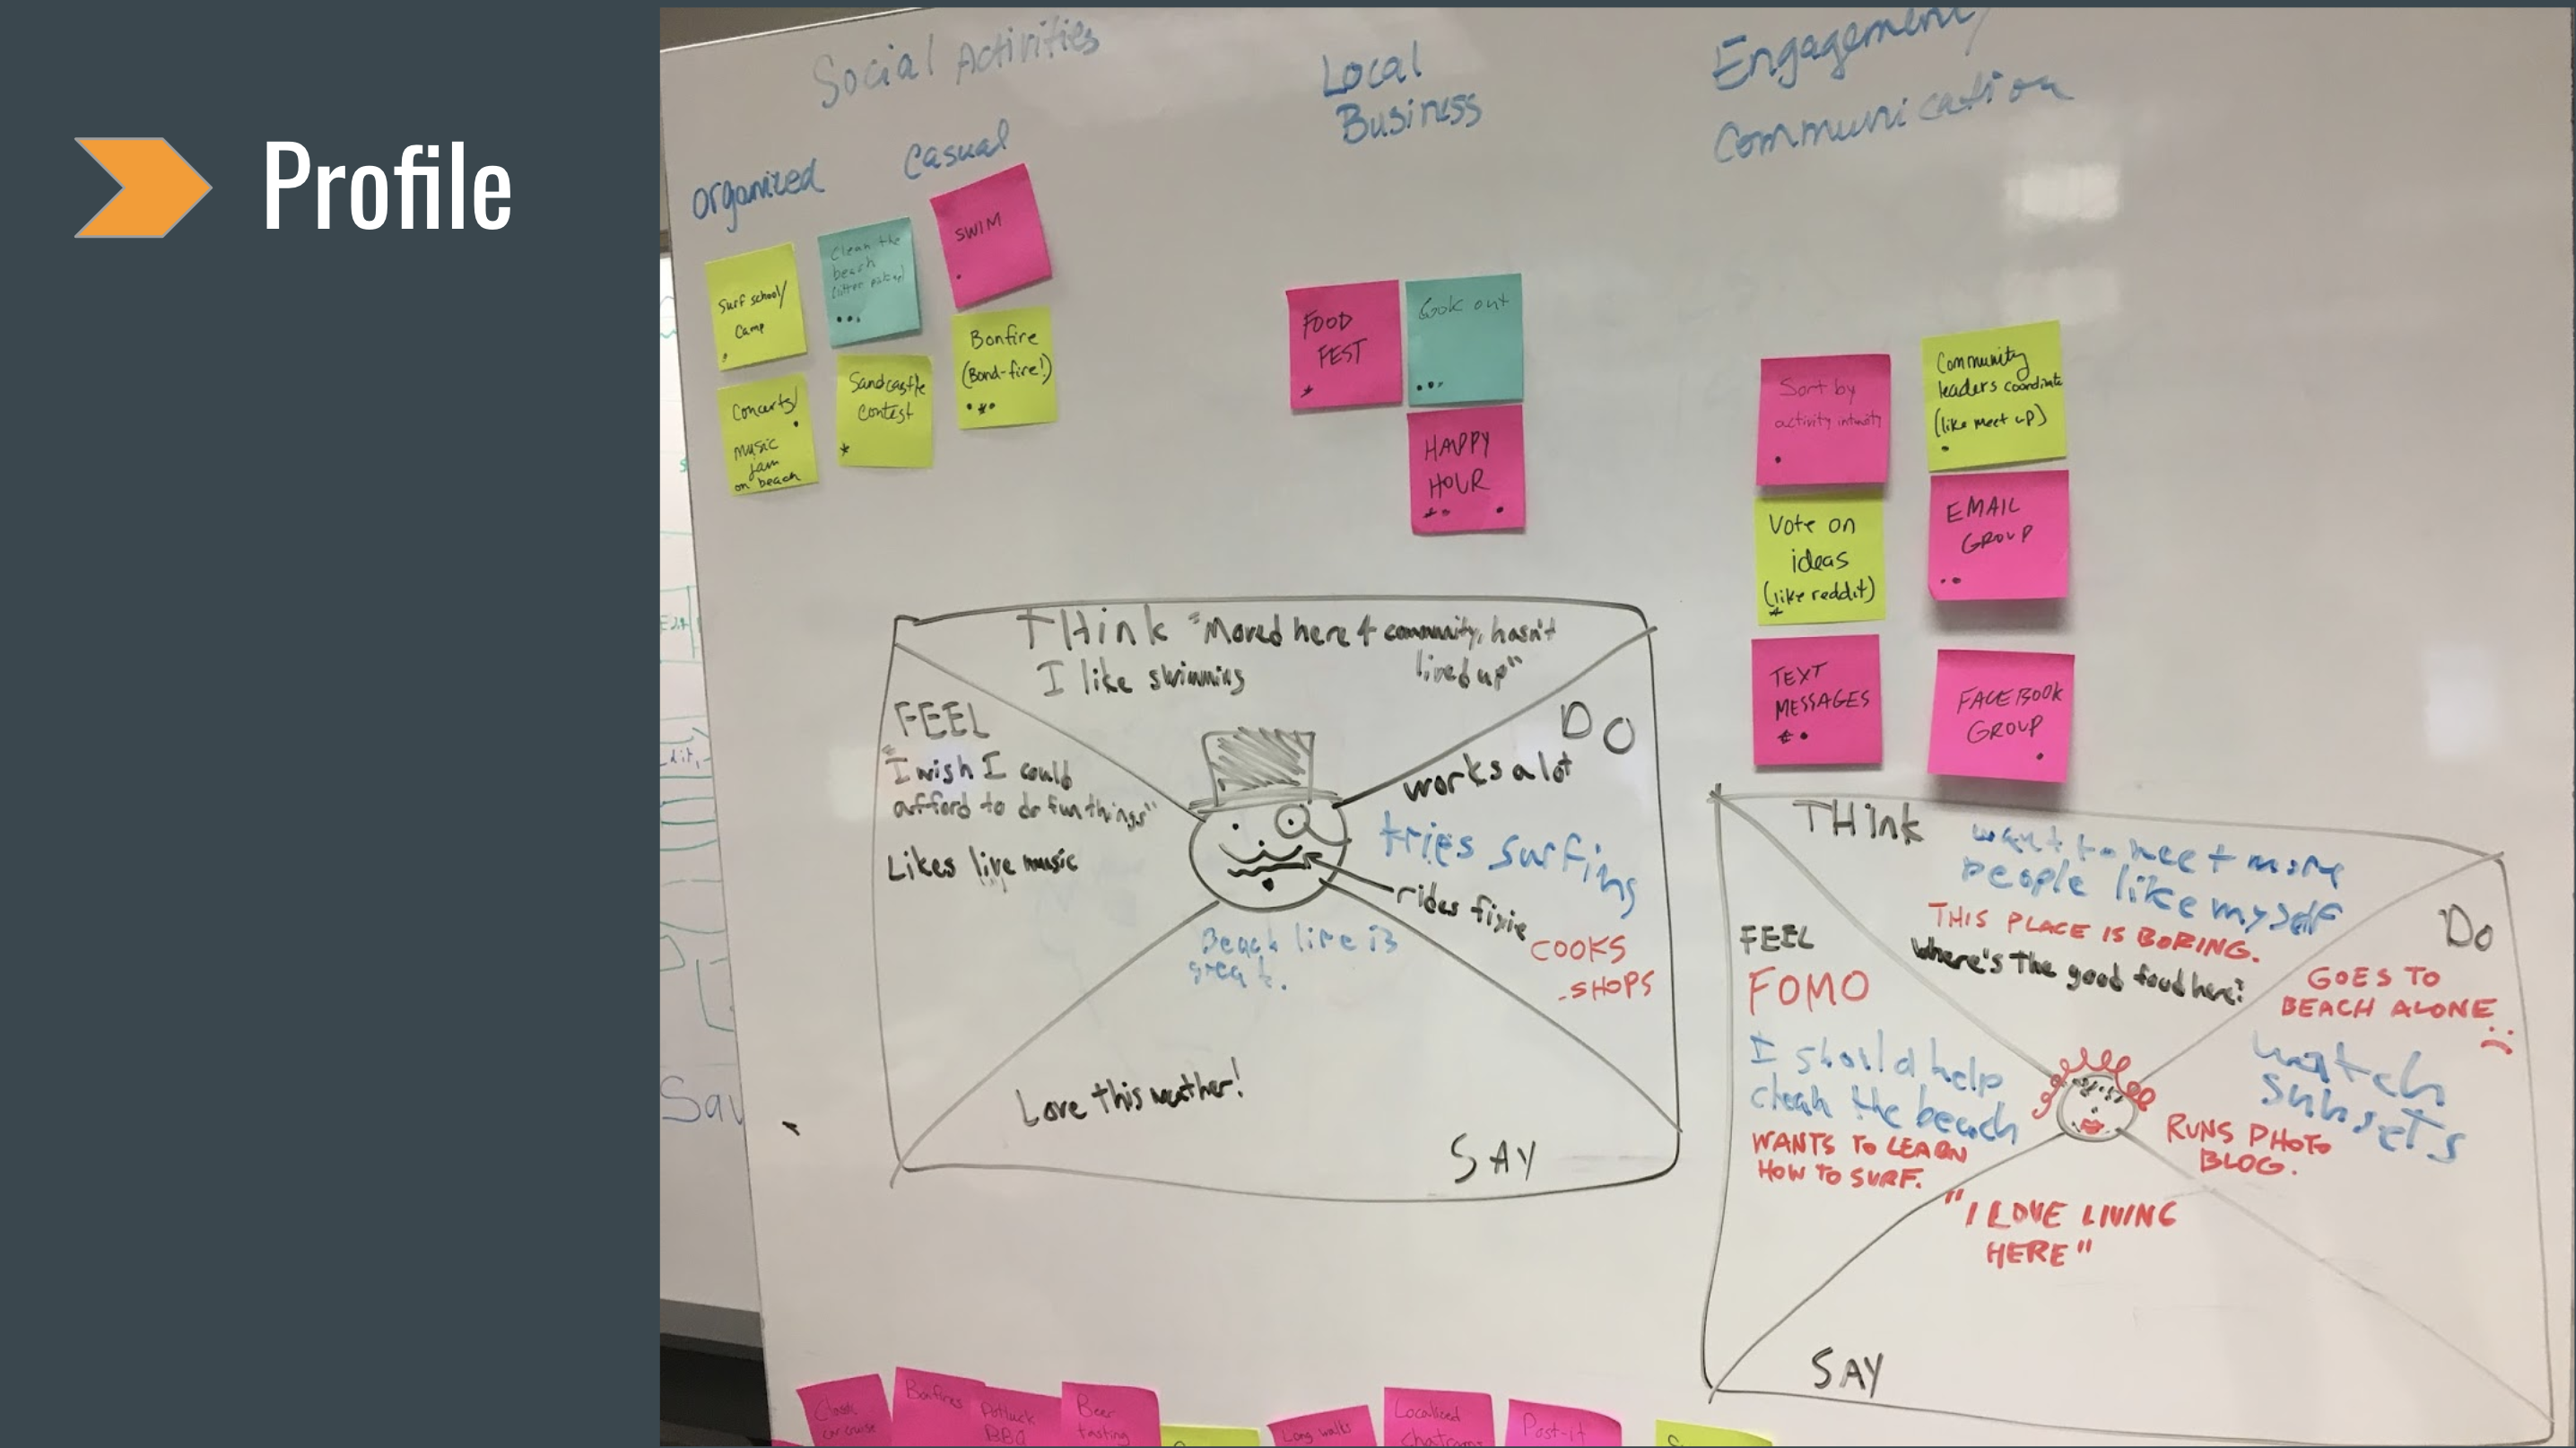 Profile
Social Activities
Organized
Casual
Local
Business
Engagement/
Communication
Surf school/
Camp
Clean the
beach
(litter pick up)
SWIM
Concerts/
music
jam
on beach
Sandcastle
contest
Bonfire
(Bond-fire!)
FOOD
FEST
Cook out
HAPPY
HOUR
Sort by
activity intensity
Community
leaders coordinate
(like meet up)
Vote on
ideas
(like reddit)
EMAIL
GROUP
TEXT
MESSAGES
FACEBOOK
GROUP
THink "Moved here 4 community, hasn't
lived up"
I like swimming
FEEL
"I wish I could
afford to do fun things"
Likes live music
DO
works a lot
tries surfing
rides fixie
COOKS
-SHOPS
Beach life is
great.
Love this weather!
SAY
THink
want to meet more
people like myself
THIS PLACE IS BORING.
Where's the good food here?
FEEL
FOMO
I should help
clean the beach
WANTS TO LEARN
HOW TO SURF.
Do
GOES TO
BEACH ALONE
watch
sunsets
RUNS PHOTO
BLOG.
"I LOVE LIVING
HERE"
SAY
Sav
Classic
car cruise
Bonfires
Potluck
BBQ
Beer
tasting
Long walks
Localized
chatroom
Post-it